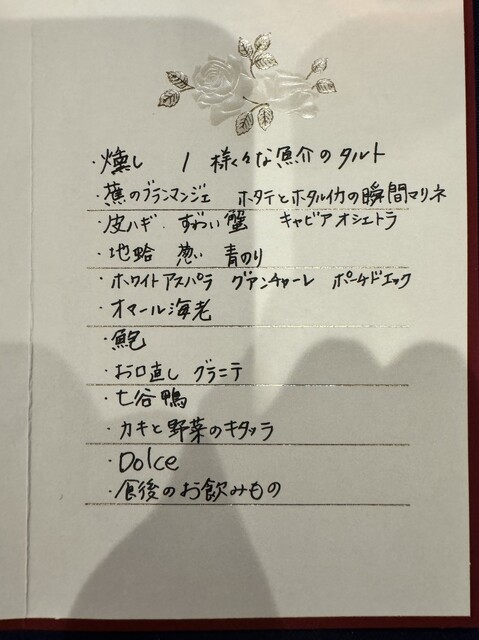 ・燻し / 様々な魚介のタルト
・蕉のブランマンジェ ホタテとホタルイカの瞬間マリネ
・皮ハギ ずわい蟹 キャビア オシェトラ
・地蛤 葱い 青のり
・ホワイトアスパラ グアンチャーレ ポーチドエッグ
・オマール海老
・鮑
・お口直し グラニテ
・七谷鴨
・カキと野菜のキタッラ
・Dolce
・食後のお飲みもの